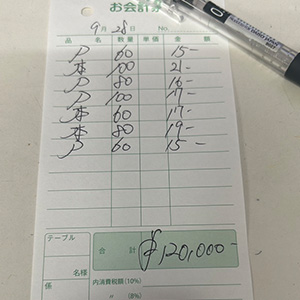 お会計券
9月28日 No.
品名 数量 単価 金額
P 60 15-
本 100 21-
P 80 16-
P 100 17-
本 60 17-
本 80 19-
P 60 15-
テーブル
名様
係
合計 ¥120,000-
内消費税額(10%)
〃 (8%)